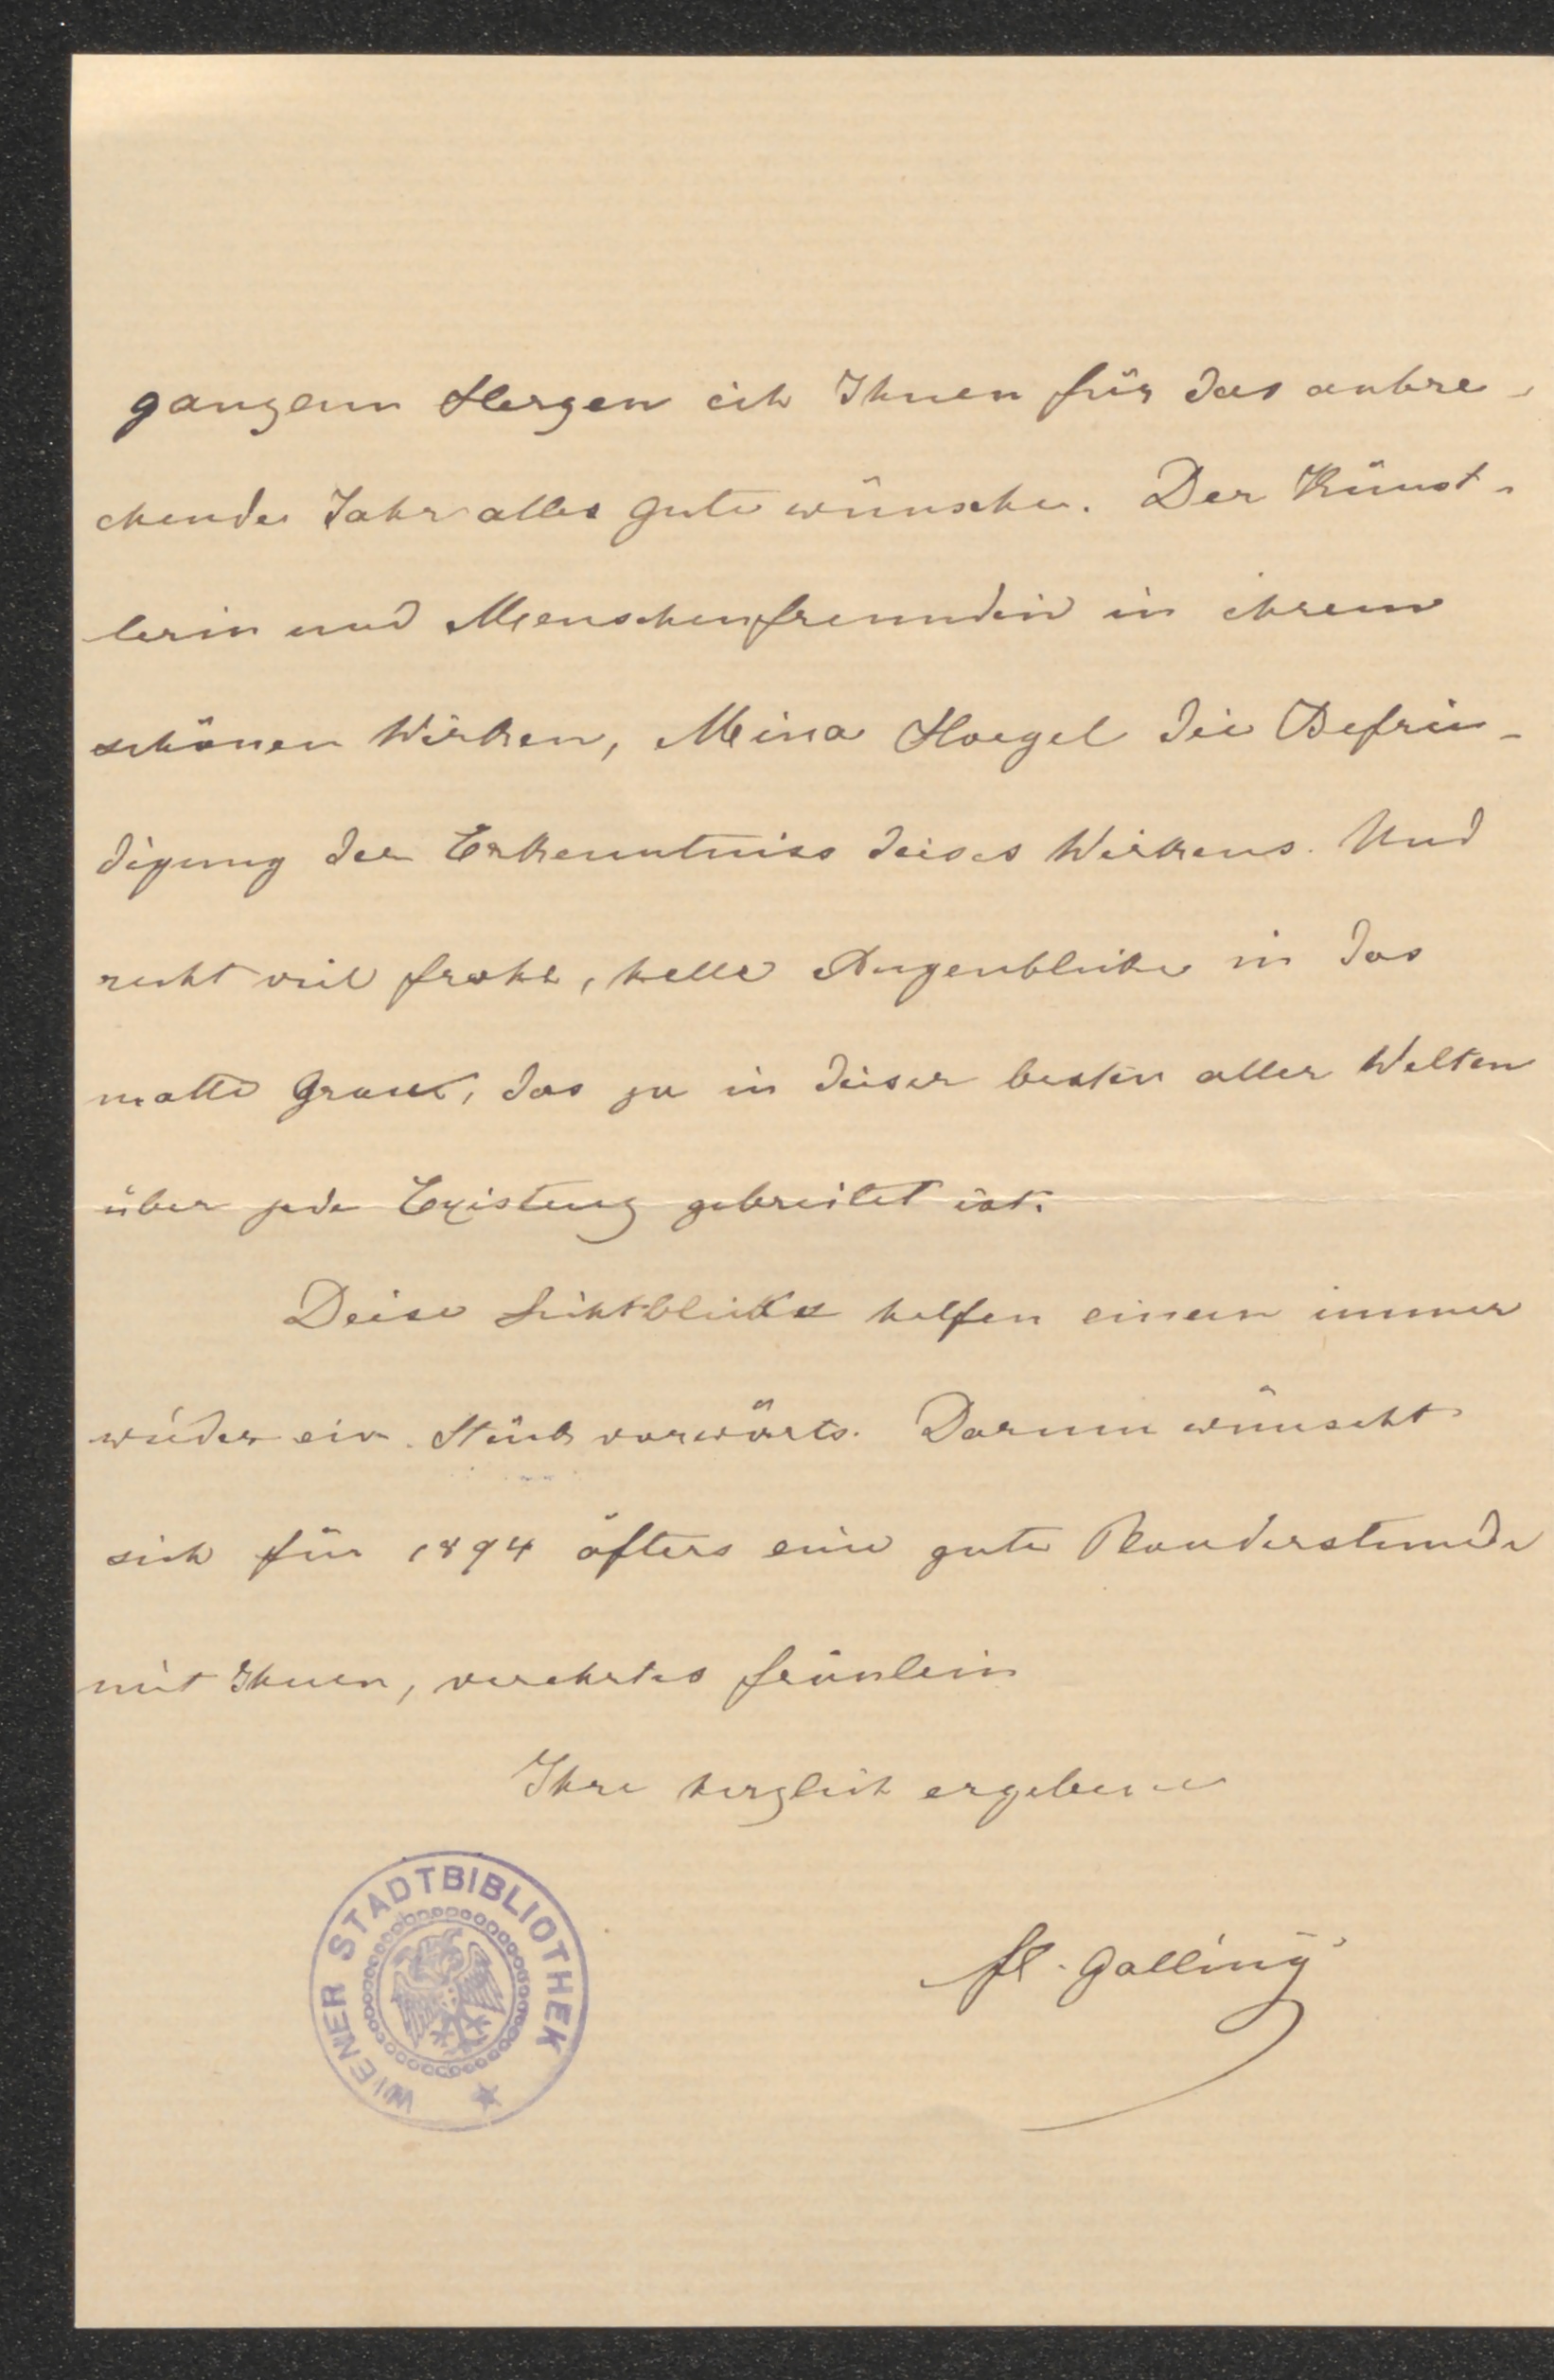 ganzem Herzen ich Ihnen für das anbre-
chende Jahr alles gute wünsche. Der Künst-
lerin und Menschenfreundin in ihrem
schönen Wirken, Mina Hoegel die Befrie-
digung der Erkenntniss dieses Wirkens. Und
recht viel frohe, helle Augenblicke in das
matte Grau, das ja in dieser besten aller Welten
über jede Existenz gebreitet ist.
Diese Lichtblicke helfen einem immer
wieder ein Stück vorwärts. Darum wünscht
sich für 1894 öfters eine gute Plauderstunde
mit Ihnen, verehrtes Fräulein
Ihre herzlich ergebene
fl. Galliny
WIENER STADTBIBLIOTHEK